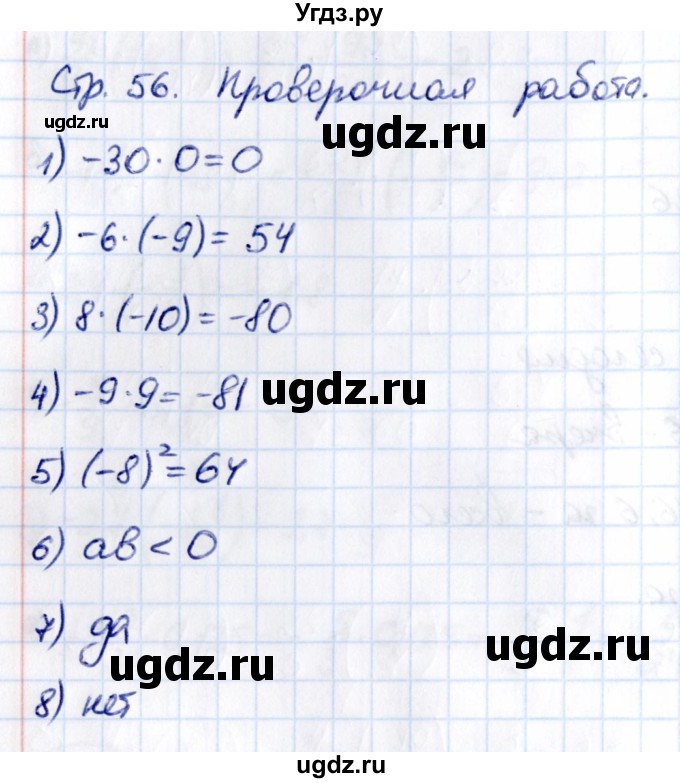 Угдз.ру
Стр. 56. Проверочная работа.
ugdz.ru
ugdz.ru
1) -30·0=0
2) -6·(-9)= 54
3) 8·(-10)= -80
4) -9·9= -81
ugdz.ru
5) (-8)²=64
6) ab < 0
7) да
ugdz.ru
ugdz.ru
8) нет
ugdz.ru